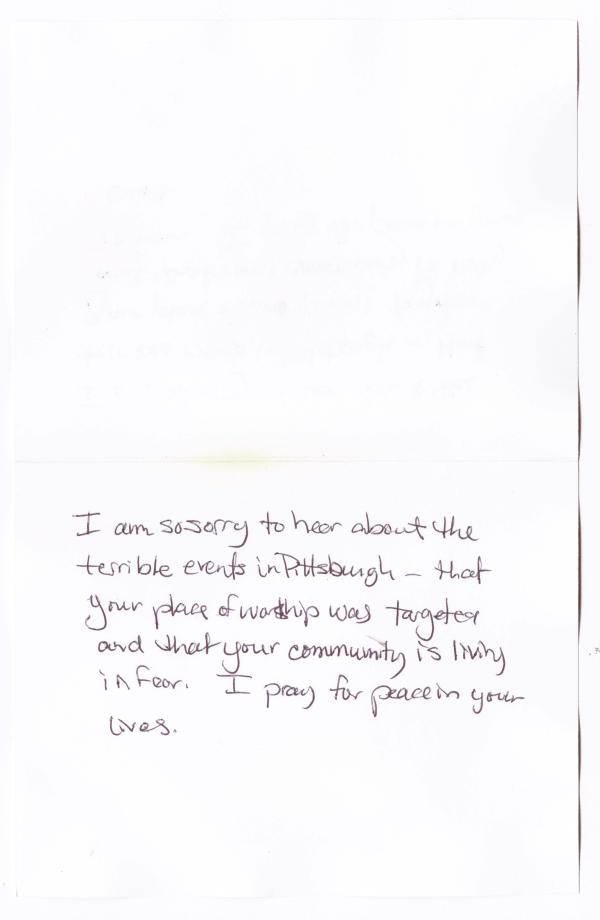 I am so sorry to hear about the
terrible events in Pittsburgh – that
your place of worship was targeted
and that your community is living
in fear. I pray for peace in your
lives.